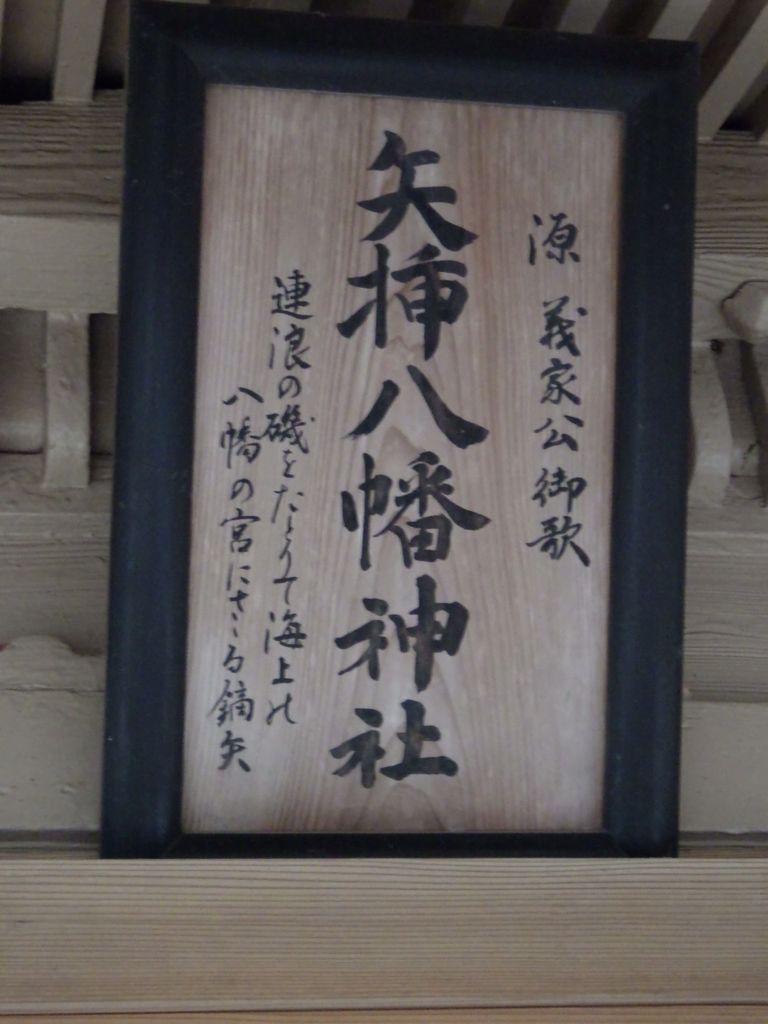 源 義家公御歌
矢挿八幡神社
連浪の磯をたとりて海上の
八幡の宮にさゝる鏑矢